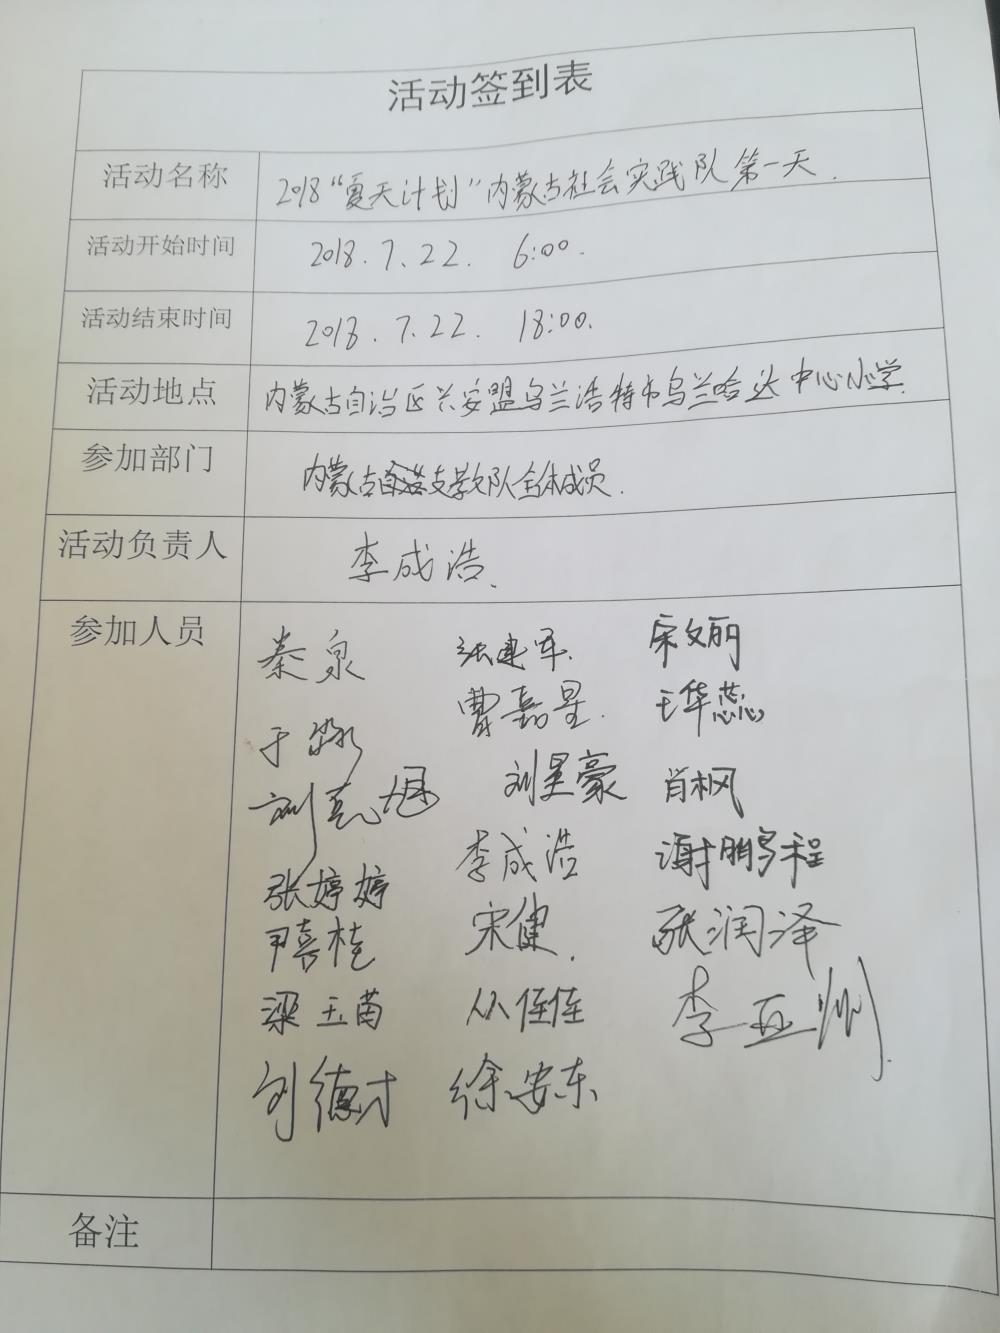 活动签到表
活动名称 2018“夏天计划”内蒙古社会实践队第一天.
活动开始时间 2018.7.22. 6:00.
活动结束时间 2018.7.22. 18:00.
活动地点 内蒙古自治区兴安盟乌兰浩特市乌兰哈达中心小学.
参加部门 内蒙古支教队全体成员.
活动负责人 李成浩.
参加人员 秦泉 张建军. 宋文丽
曹嘉星. 王华蕊
于淼
刘星豪 肖枫
刘亮旭
李成浩 谢鹏程
张婷婷
尹喜桂 宋健. 张润泽
梁玉苗 从侄侄 李亚洲.
刘德才 徐安东
备注